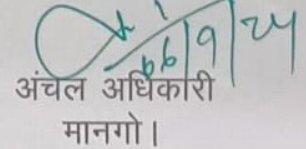 06/9/24
अंचल अधिकारी
मानगो।